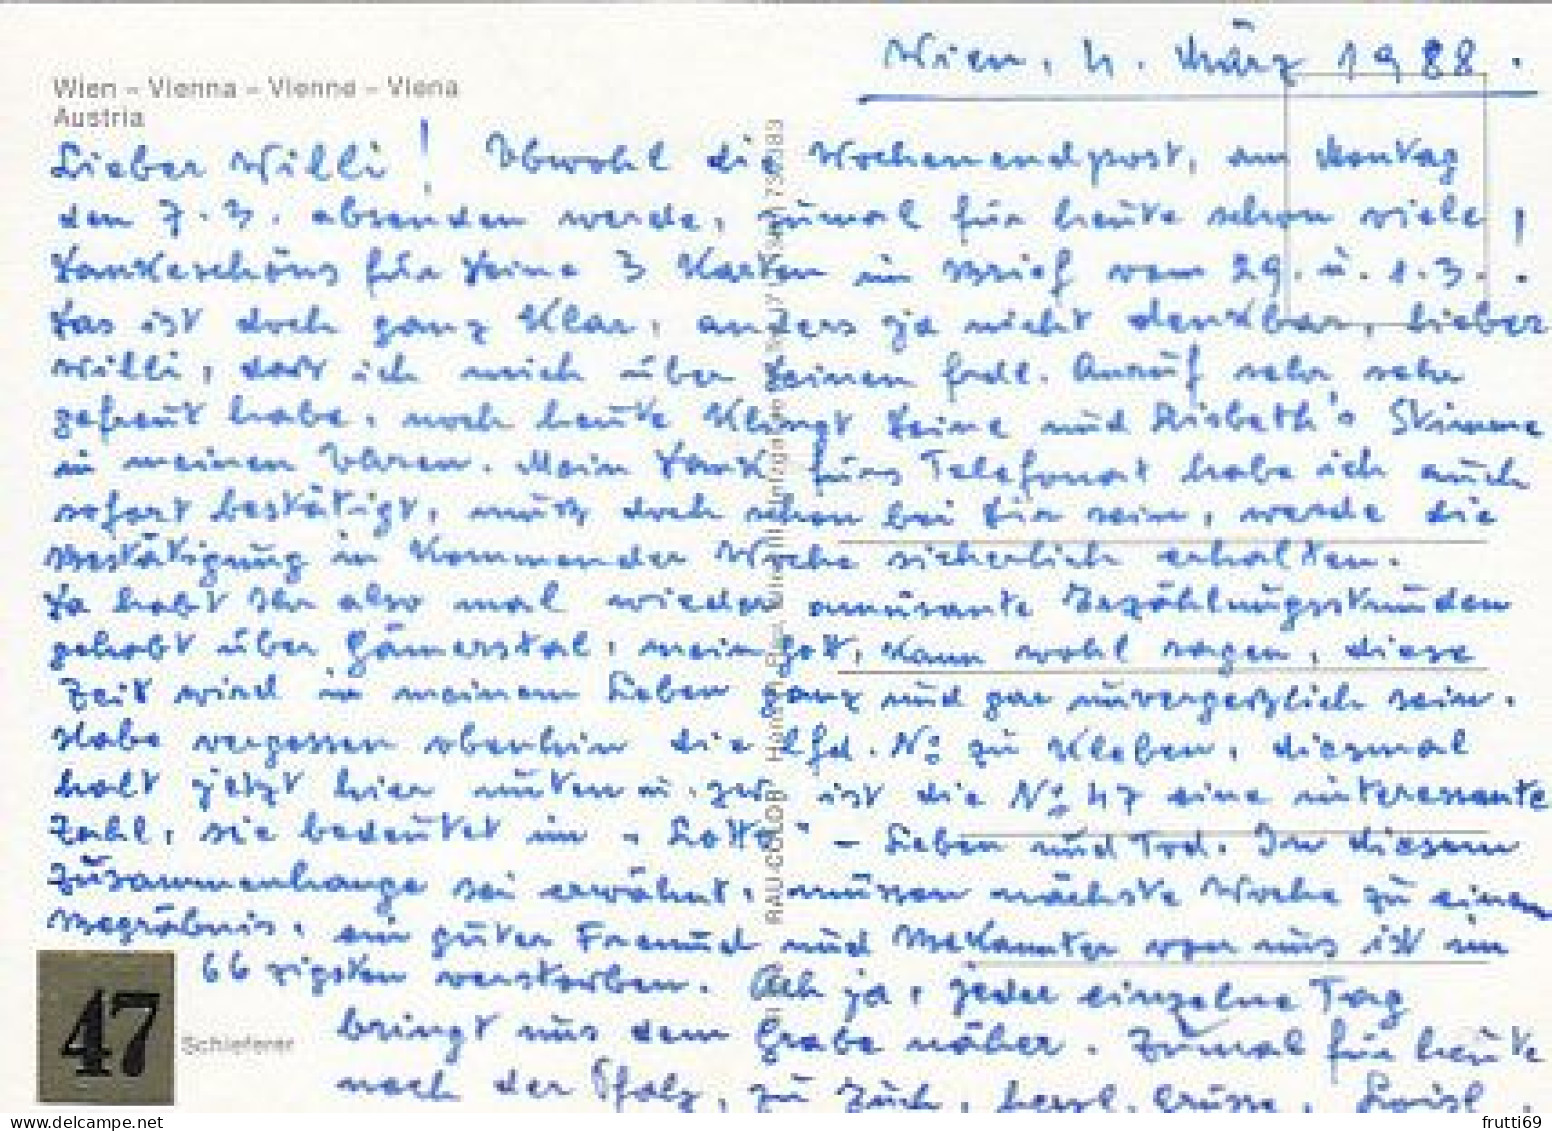 Wien, 4. März 1988.
Wien – Vienna – Vienne – Viena
Austria
Lieber Willi! Obwohl die Wochenendpost, am Montag
den 7.3. absenden werde, zumal für heute schon viele!
Dankeschöns für Deine 3 Karten im Brief vom 29. u. 1.3..
Das ist doch ganz klar, anders ja nicht denkbar, lieber
Willi, daß ich mich über Deinen frdl. Anruf sehr sehr
gefreut habe, noch heute klingt Deine und Lisbeth's Stimme
in meinen Ohren. Mein Dank fürs Telefonat habe ich auch
sofort bestätigt, müßt doch schon bei Dir sein, werde die
Bestätigung in kommender Woche sicherlich erhalten.
Da habt Ihr also mal wieder amüsante Erzählungsstunden
gehabt über Gämerstal, mein Gott, kann wohl sagen, diese
Zeit wird in meinem Leben ganz und gar unvergeßlich sein.
Habe vergessen obenhin die lfd. No zu kleben, diesmal
halt jetzt hier unten u. zw. ist die No 47 eine interessante
Zahl, sie bedeutet im "Lotto" – Leben und Tod. In diesem
Zusammenhange sei erwähnt, müssen nächste Woche zu einem
Begräbnis, ein guter Freund und Bekannter von uns ist im
66zigsten verstorben. Ach ja, jeder einzelne Tag
bringt uns dem Grabe näher. Zumal für heute
nach der Pfalz, zu Euch, herzl. Grüsse, Loisl.
47
Schieferer
RAU-COLOR
frutti69
www.delcampe.net